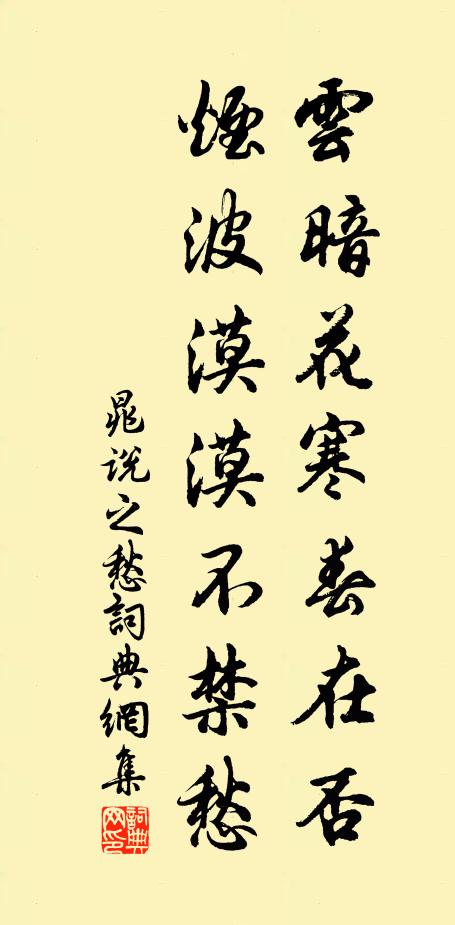 雲暗花寒春在否
煙波漠漠不禁愁
晁説之愁詞典網集
詞典網印